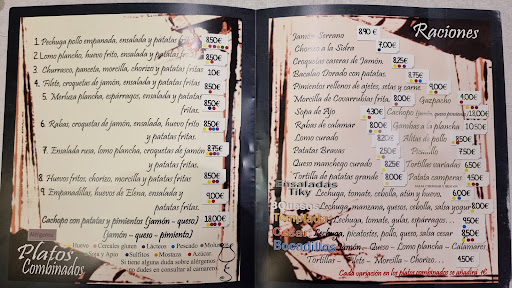 1. Pechuga pollo empanada, ensalada y patatas fritas 8.50€
2. Lomo plancha, huevo frito, ensalada y patatas fritas 8.50€
3. Churrasco, panceta, morcilla, chorizo y patatas fritas 10€
4. Filete, croquetas de jamón, ensalada y patatas fritas 8.50€
5. Merluza plancha, espárragos, ensalada y patatas fritas. 8.50€
6. Rabas, croquetas de jamón, ensalada, huevo frito y patatas fritas. 8.50€
7. Ensalada rusa, lomo plancha, croquetas de jamón y patatas fritas. 8.75€
8. Huevos fritos, chorizo, morcilla y patatas fritas 8.50€
9. Empanadillas, huevos de Elena, ensalada y patatas fritas. 9.00€
Cachopo con patatas y pimientos (jamón – queso) 18.00€
(jamón – queso – pimiento)
Alérgenos
Huevo Cereales gluten Lácteos Pescado Moluscos
Soja y Apio Sulfitos Mostaza Azúcar
Si tiene alguna duda sobre alérgenos
no dudes en consultar al camarero
Platos
Combinados
Raciones
Jamón Serrano 8.90€
Chorizo a la Sidra 7.00€
Croquetas caseras de Jamón 8.25€
Bacalao Dorado con patatas 8.75€
Pimientos rellenos de ajetes, setas y carne 9.00€
Morcilla de Covarrubias frita. 8.00€ Gazpacho 4.00€
Sopa de Ajo 4.30€ Cachopo (jamón, queso, pimiento) 18.00€
Rabas de calamar 8.00€ Gambas a la plancha 10.50€
Lomo curado 8.20€ Alitas de pollo 5.50€
Patatas Bravas 2.50€ 7.50€
Queso manchego curado 7.25€ Tortillas variadas 6.50€
Tortilla de patata grande 8.00€ Patata camperas 4.50€
Ensaladas
Tiky Lechuga, tomate, cebolla, atún y huevo. 6.00€
Lechuga, manzana, queso, cebolla, salsa 8.00€
Lechuga, tomate, gulas, espárragos... 9.50€
Lechuga, picatostes, pollo, queso, salsa cesar
Bocadillos Jamón – Queso – Lomo plancha – Calamares
Tortillas – Filete – Morcilla – Chorizo... 4.50€
Cada variación en los platos combinados se añadirá 1€